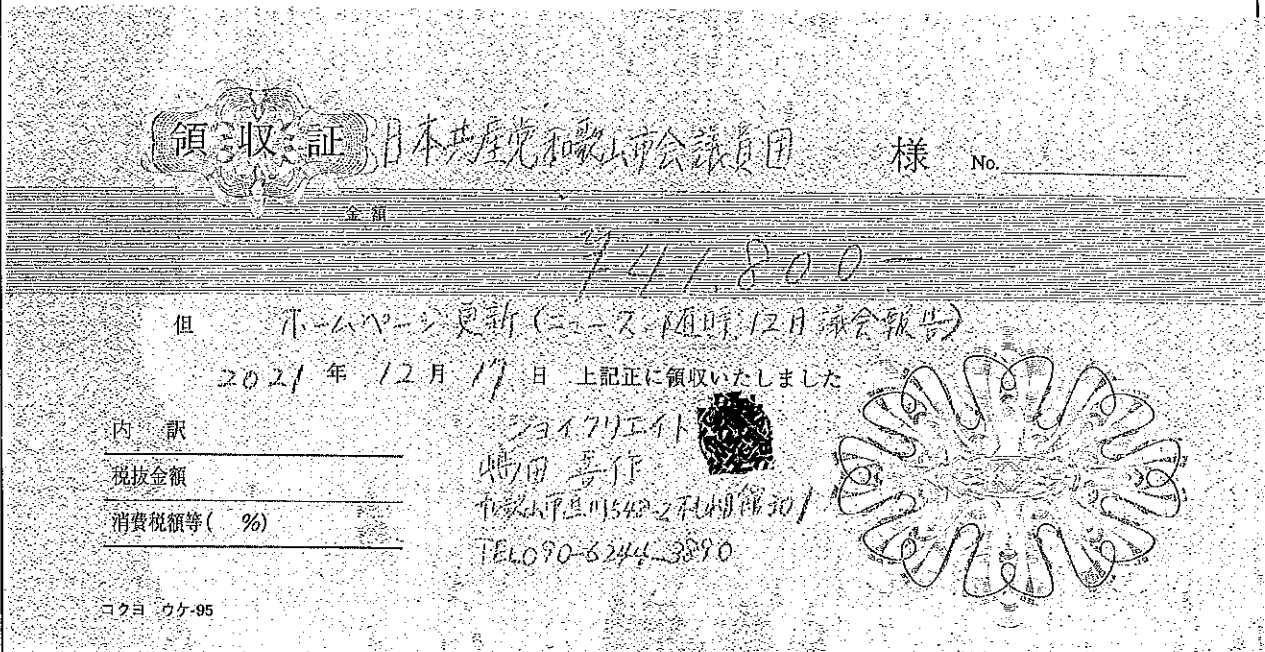 領収証 日本共産党和歌山市会議員団 様 No.
金額
¥41,800-
但 ホームページ更新(ニュース・随時、12月議会報告)
2021年12月17日 上記正に領収いたしました
内訳
税抜金額
消費税額等( %)
ジョイクリエイト
嶋田
和歌山市 542-2 301
TEL090-6244-3890
コクヨ ウケ-95